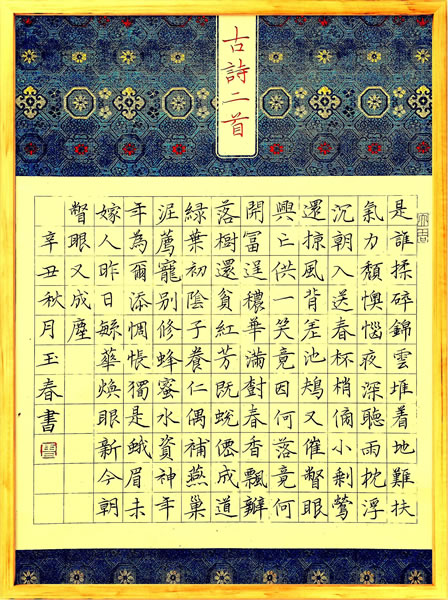 古詩二首
是誰揉碎錦雲堆着地難扶
氣力頹懊惱夜深聽雨枕浮
沉朝入送春杯梢傍小剩鶯
還掠風背差池鳩又催瞥眼
興亡供一笑竟因何落竟何
開冨逞穠華滿樹春香飄瓣
落樹還貧紅芳既蛻僊成道
綠葉初陰子養仁偶補燕巢
泥薦寵別修蜂蜜水資神年
年為爾添惆悵獨是蛾眉未
嫁人昨日緐華煥眼新今朝
瞥眼又成塵
辛丑秋月玉春書